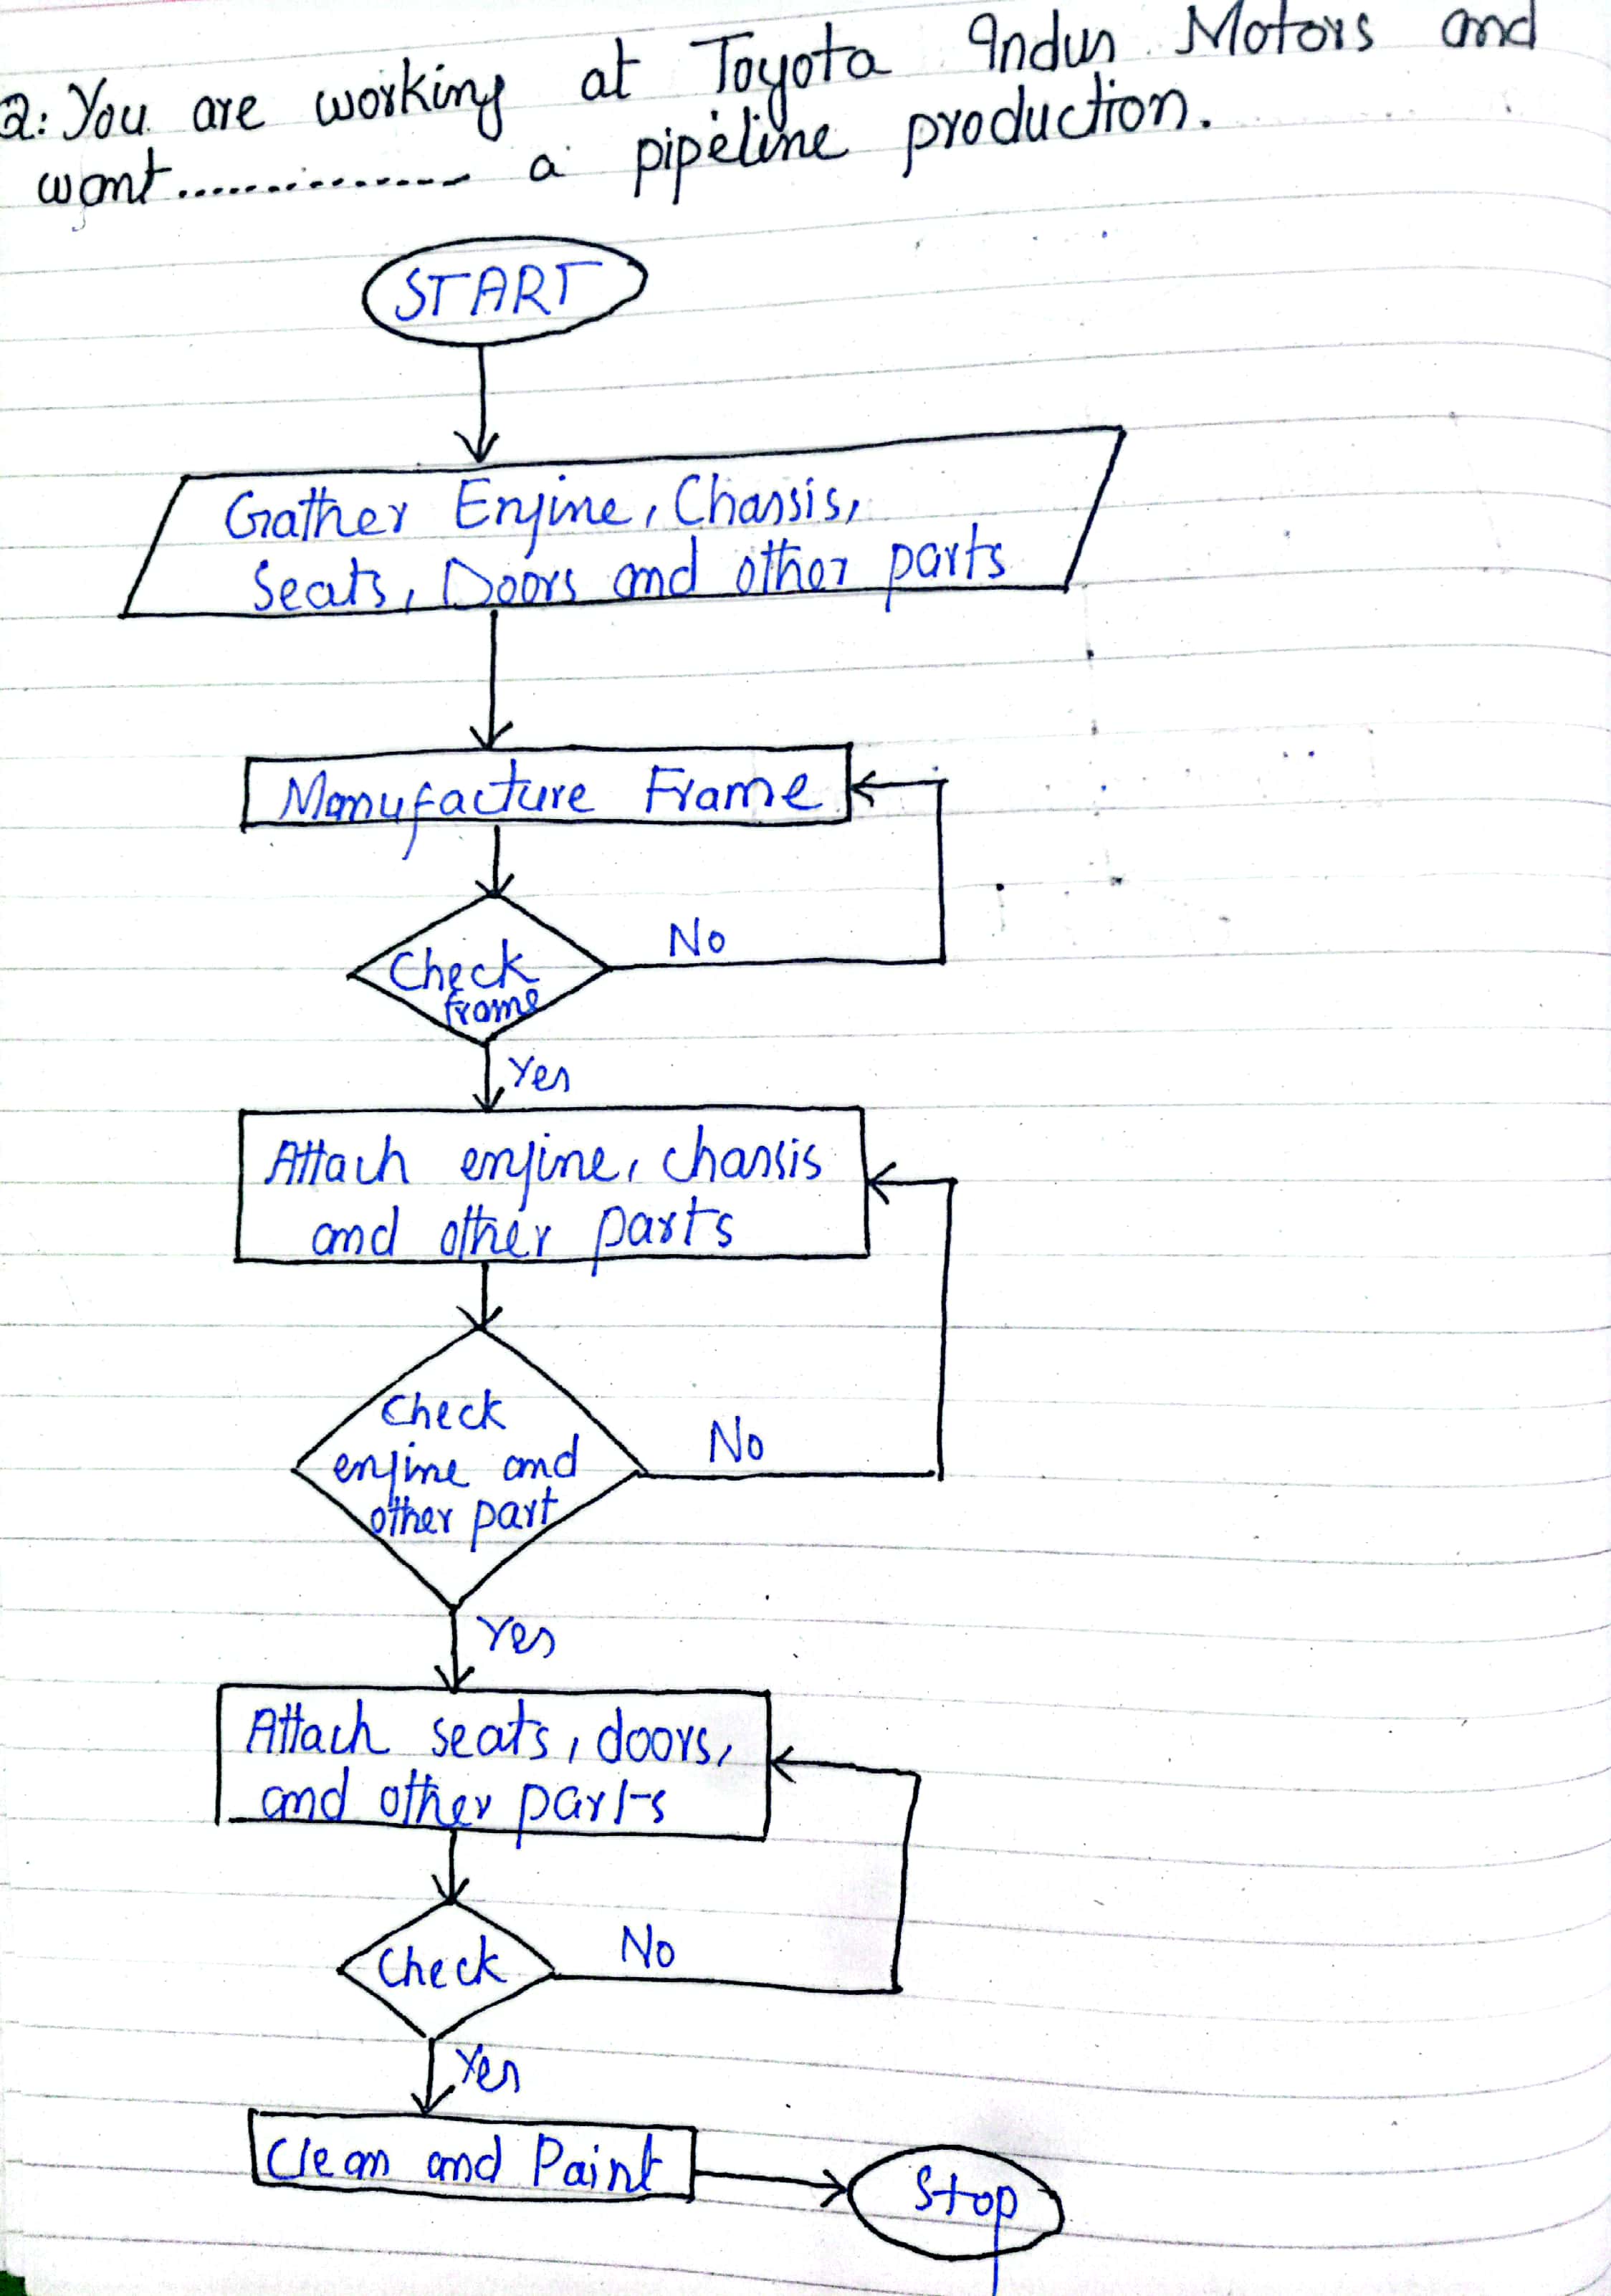 Q: You are working at Toyota Indus Motors and
want.............. a pipeline production.
START
Gather Engine, Chassis,
Seats, Doors and other parts
Manufacture Frame
Check
frame
No
Yes
Attach engine, chassis
and other parts
Check
engine and
other part
No
Yes
Attach seats, doors,
and other parts
Check
No
Yes
Clean and Paint
Stop